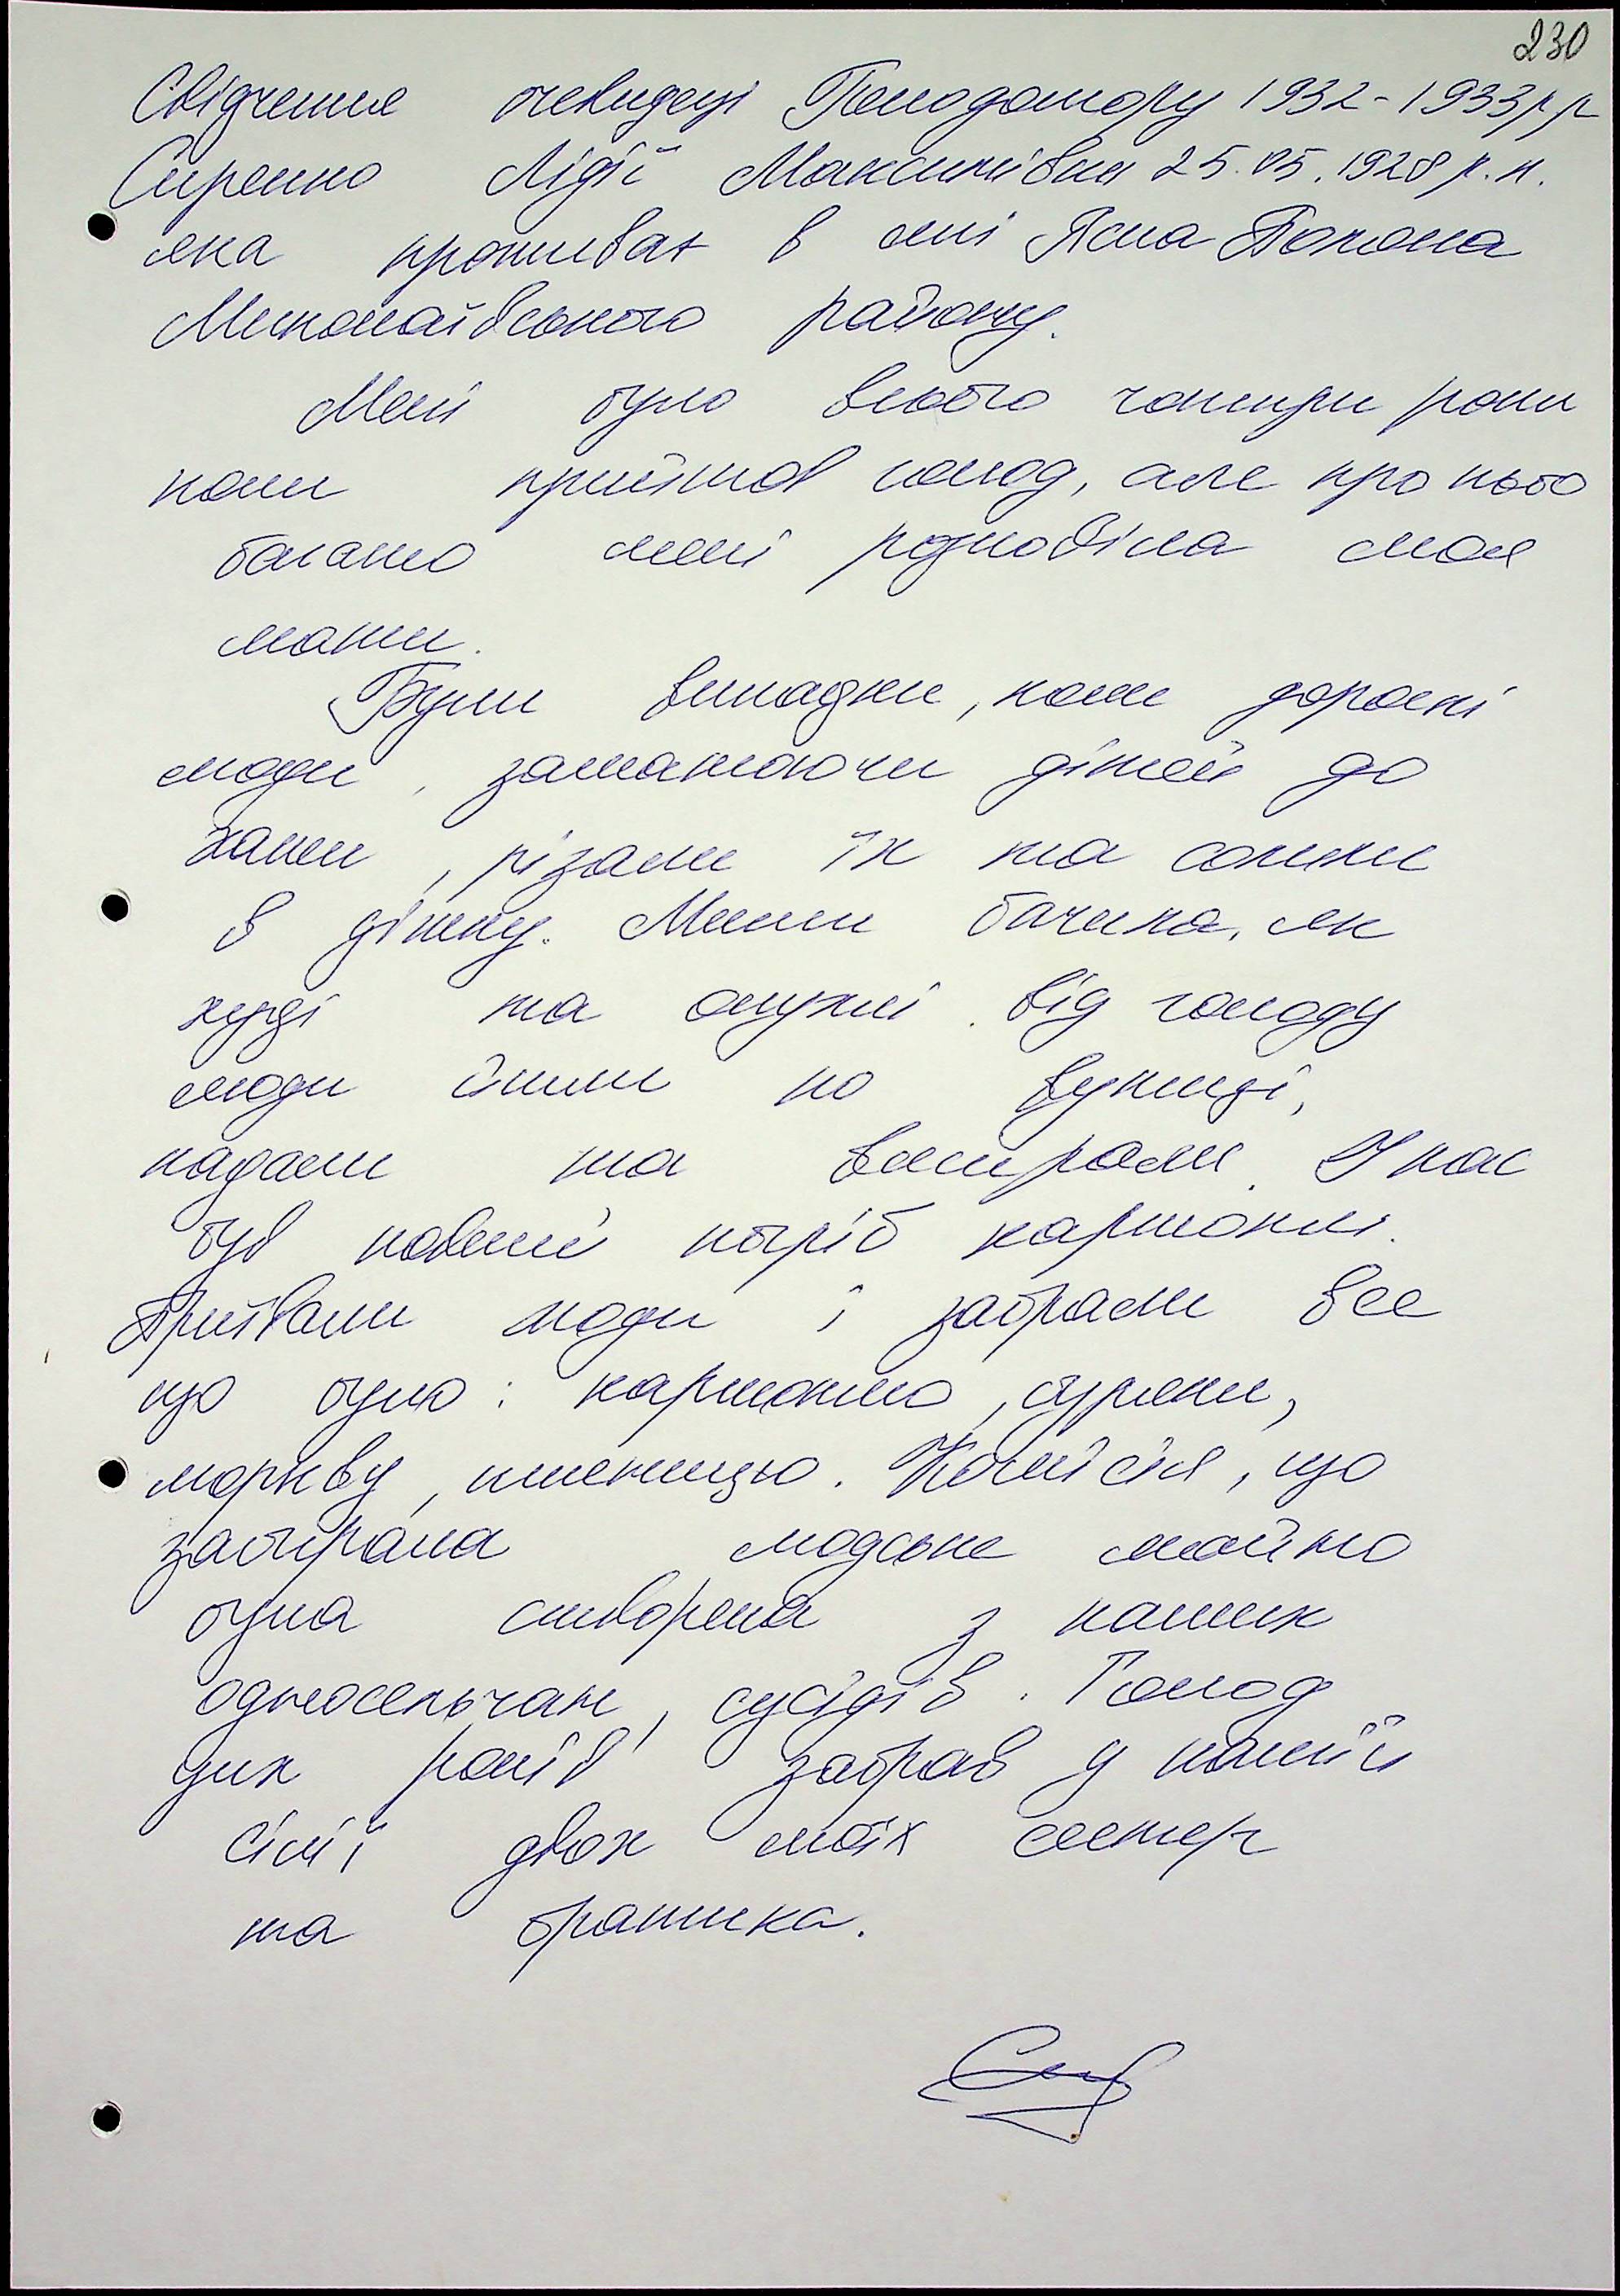 230
Свідчення очевидці Голодомору 1932-1933 р.р
Сиренко Лідії Максимівни 25.05.1928 р.н.
яка проживає в смі Ясна Поляна
Миколаївського району.
Мені було всього чотири роки
коли прийшов голод, але про нього
багато мені розповіла моя
мати.
Були випадки, коли дорослі
люди, заманюючи дітей до
хати, різали їх та солили
в діжку. Мати бачила, як
худі та опухлі від голоду
люди йшли по вулиці,
падали та вмирали. У нас
був повний погріб картоплі.
Приїхали люди і забрали все
що було: картоплю, буряки,
моркву, пшеницю. Комісія, що
забирала людське майно
була створена з наших
односельчан, сусідів. Голод
цих років забрав у нашій
сім'ї двох моїх сестер
та братика.